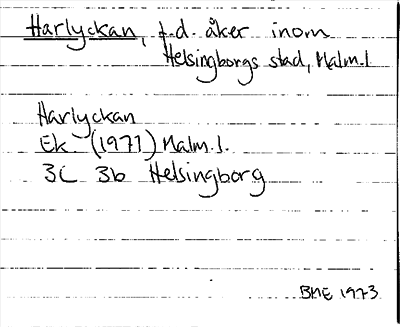 Harlyckan, f.d. åker inom
Helsingborgs stad, Malm.l
Harlyckan
Ek (1971) Malm.l.
3C 3b Helsingborg
BME 1973